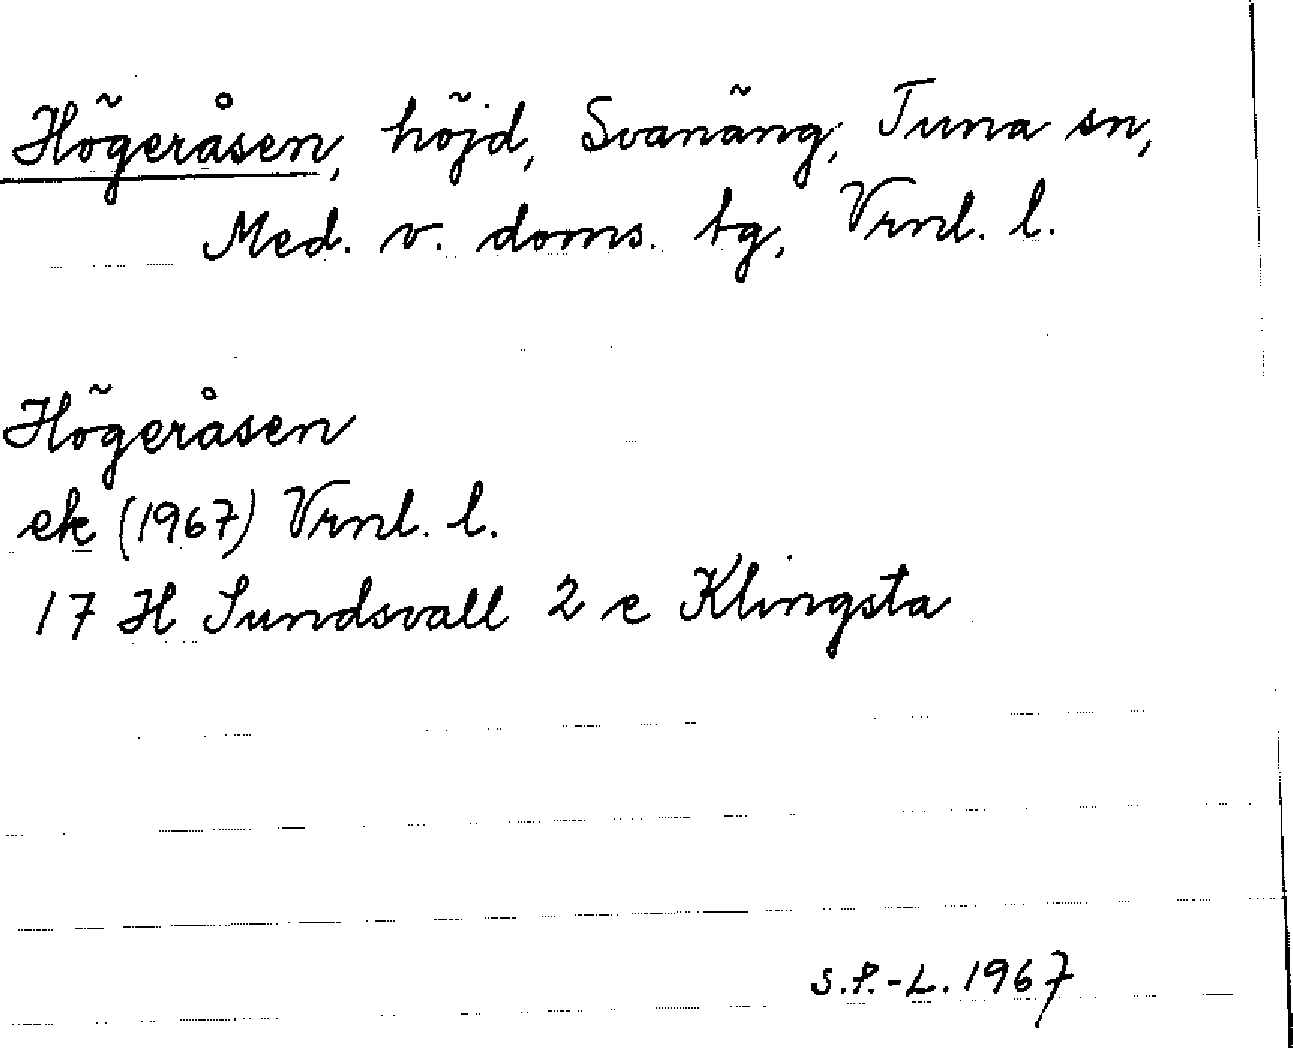 Högeråsen, höjd, Svanäng, Tuna sn,
Med. v. doms. tg, Vrnl. l.
Högeråsen
ek (1967) Vrnl. l.
17 H Sundsvall 2 e Klingsta
S.P.-L. 1967